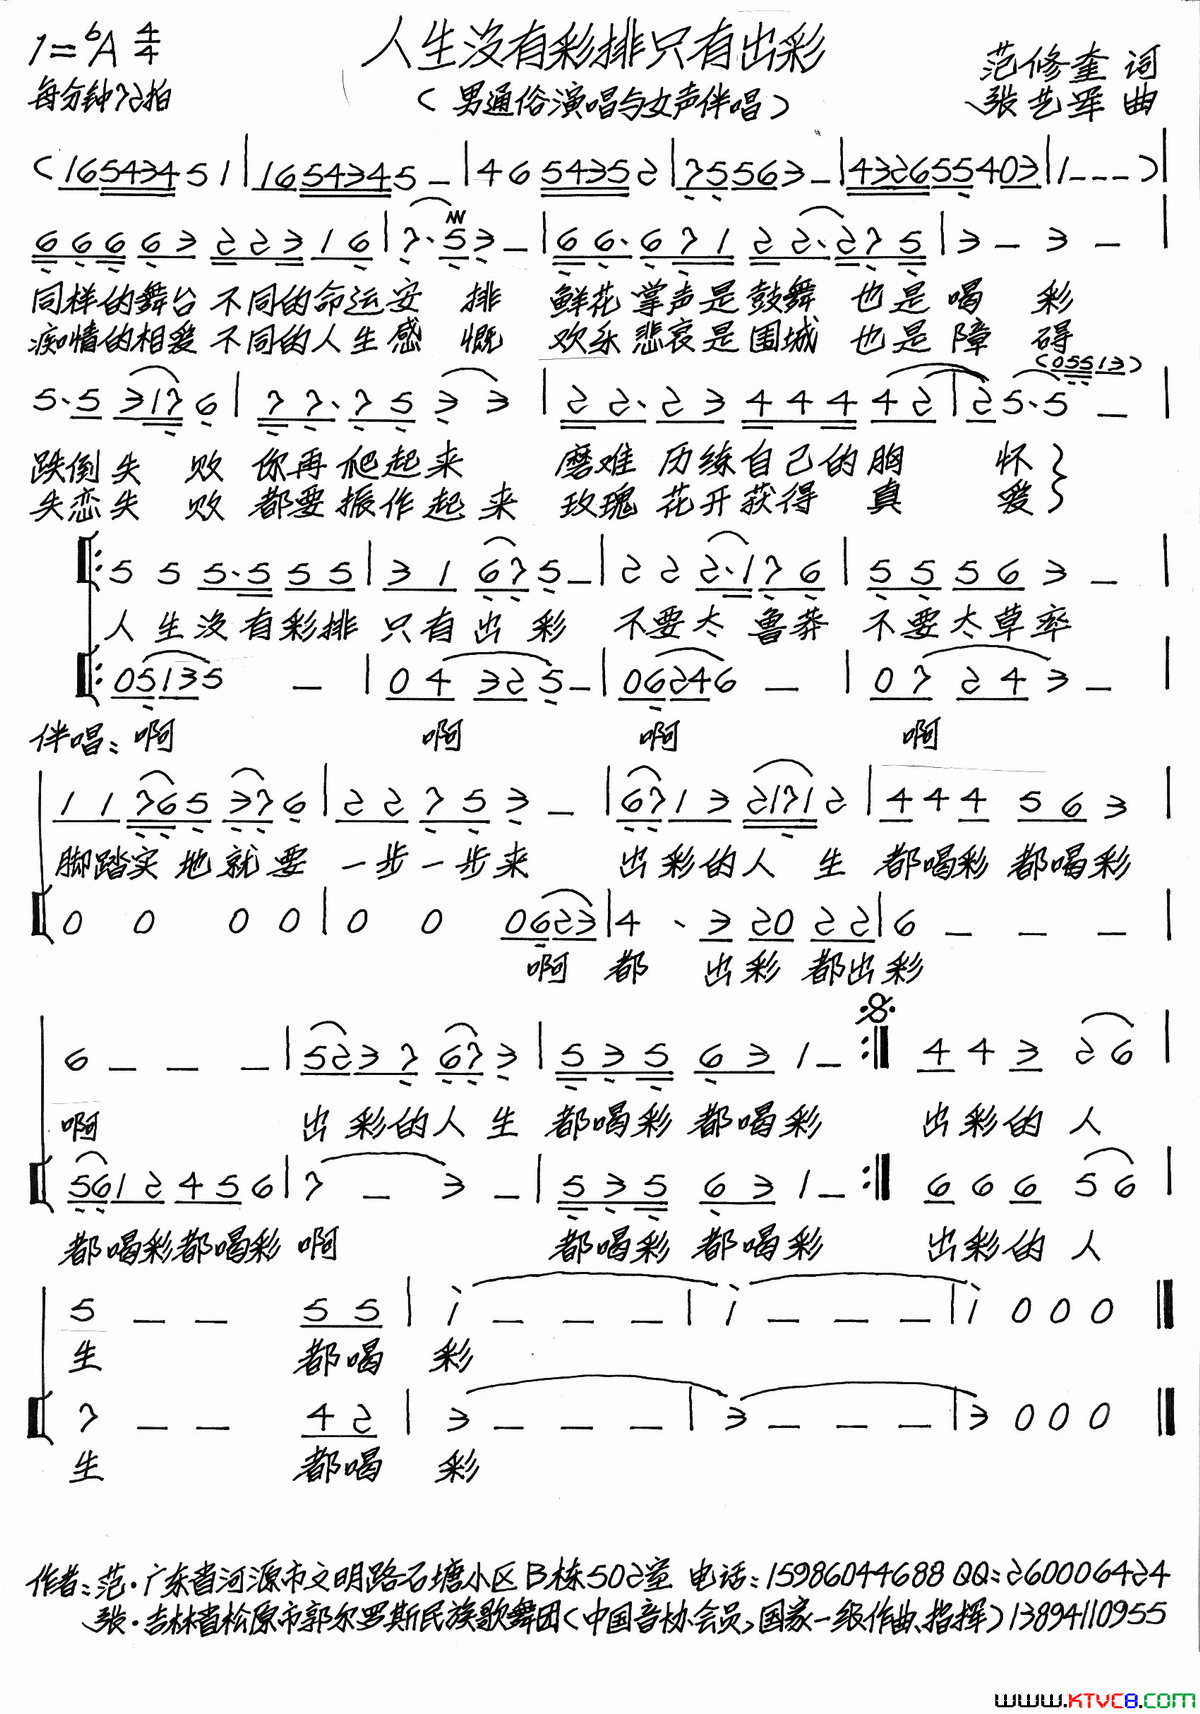 1=ᵇA 4/4
人生没有彩排只有出彩
范修奎 词
每分钟72拍
(男通俗演唱与女声伴唱)
张艺军 曲
(16543451|16543451 5 – |4 6 54352|75563 – |432655403|1 – – – )|
66663 223 16|7·53 – |66·671 22·275|3 – 3 – |
同样的舞台 不同的命运安 排 鲜花掌声是鼓舞 也是喝 彩
痴情的相爱 不同的人生感 慨 欢乐悲哀是围城 也是障 碍
(05513)
5·5 3176|77·75 3 3|22·23 44442|25·5 – |
跌倒失 败 你再爬起来 磨难 历练自己的胸 怀}
失恋失 败 都要振作起来 玫瑰 花开获得 真 爱}
‖:5 5 5·5 55|3 1 675 – |2 2 2·176|5 5 5 6 3 – |
人生没有彩排 只有出彩 不要太 鲁莽 不要太草率
‖:05135 – |04 325 – |06246 – |07 243 – |
伴唱:啊 啊 啊 啊
11 765 376|22 753 – |6713 21712|444 563|
脚踏实 地就要 一步一步来 出彩的人 生 都喝彩 都喝彩
0 0 0 0|0 0 0623|4 · 3 20 22|6 – – – |
啊 都 出彩 都出彩
6 – – – |5237 673|535 63 1 – :‖ 443 26|
啊 出彩的人生 都喝彩 都喝彩 出彩的 人
5612 456|7 – 3 – |535 63 1 – :‖ 666 56|
都喝彩都喝彩 啊 都喝彩 都喝彩 出彩的 人
5 – – 55|i – – – |i – – – |i 0 0 0‖
生 都喝 彩
7 – – 42|3 – – – |3 – – – |3 0 0 0‖
生 都喝 彩
作者:范·广东省河源市文明路石塘小区B栋502室 电话:15986044688 QQ:260006424
张·吉林省松原市郭尔罗斯民族歌舞团(中国音协会员,国家一级作曲、指挥)13894110955
www.KTVC8.com